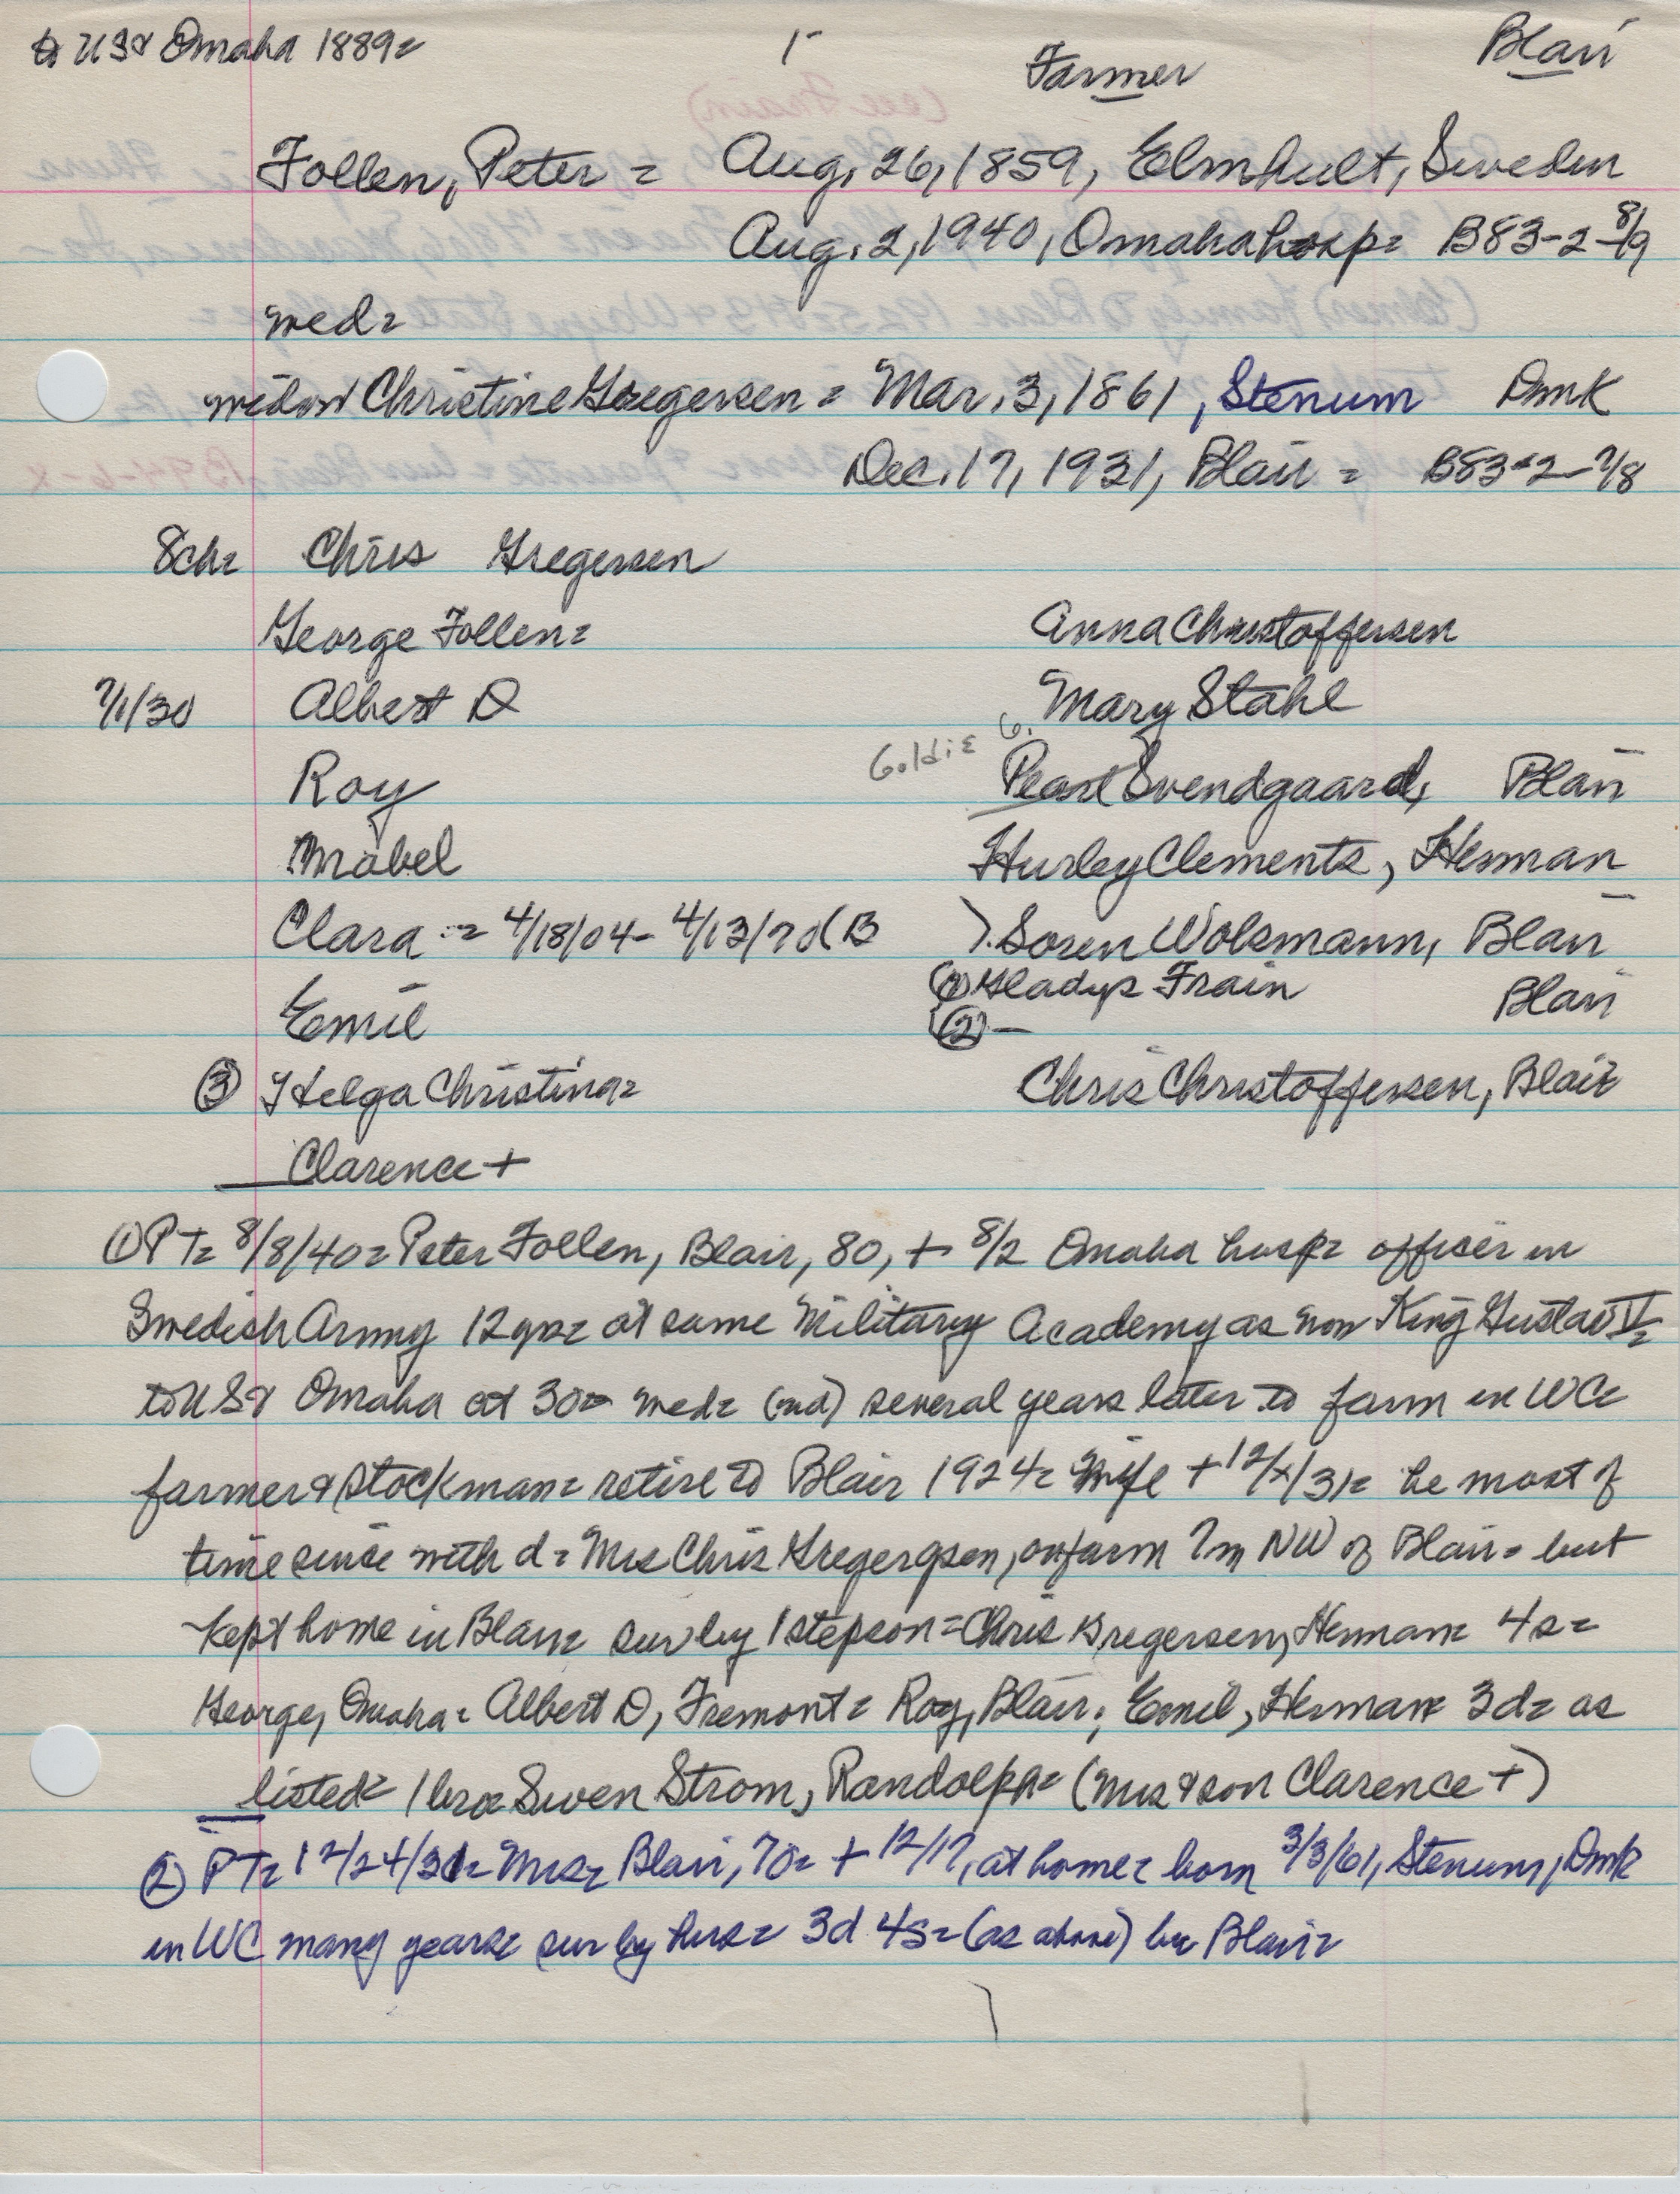 to US & Omaha 1889= 1- Farmer Blair
Follen, Peter = Aug. 26, 1859, Elmhult, Sweden
Aug. 2, 1940, Omaha hosp= B83-2-8/9
wed=
widow Christine Gregersen = Mar. 3, 1861, Stenum Dmk
Dec. 17, 1931, Blair = B83-2-7/8
8ch= Chris Gregersen
George Follen= Anna Christoffersen
7/1/30 Albert D Mary Stahl
Goldie G.
Roy Pearl Svendgaard, Blair
Mabel Hurley Clements, Herman
Clara := 4/18/04- 4/13/70(B ). Soren Wolsmann, Blair
(1) Gladys Frain
Emil (2)- Blair
(3) Helga Christina= Chris Christoffersen, Blair
Clarence +
(1) PT= 8/8/40= Peter Follen, Blair, 80, + 8/2 Omaha hosp= officer in
Swedish Army 12 yrs= at same Military Academy as now King Gustav V=
to US & Omaha at 30= wed= (nd) several years later to farm in WC=
farmer & stockman= retire to Blair 1924= Wife + 12/x/31= he most of
time since with d= Mrs Chris Gregergsen, on farm 7m NW of Blair= but
kept home in Blair= sur by 1 stepson= Chris Gregersen, Herman= 4s=
George, Omaha= Albert D, Fremont= Roy, Blair; Emil, Herman= 3d= as
listed= 1 bro= Swen Strom, Randolph= (Mrs & son Clarence +)
(2) PT= 12/24/31= Mrs= Blair, 70= + 12/17, at home= born 3/3/61, Stenum, Dmk
in WC many years= sur by hus= 3d 4s= (as above) bu Blair=